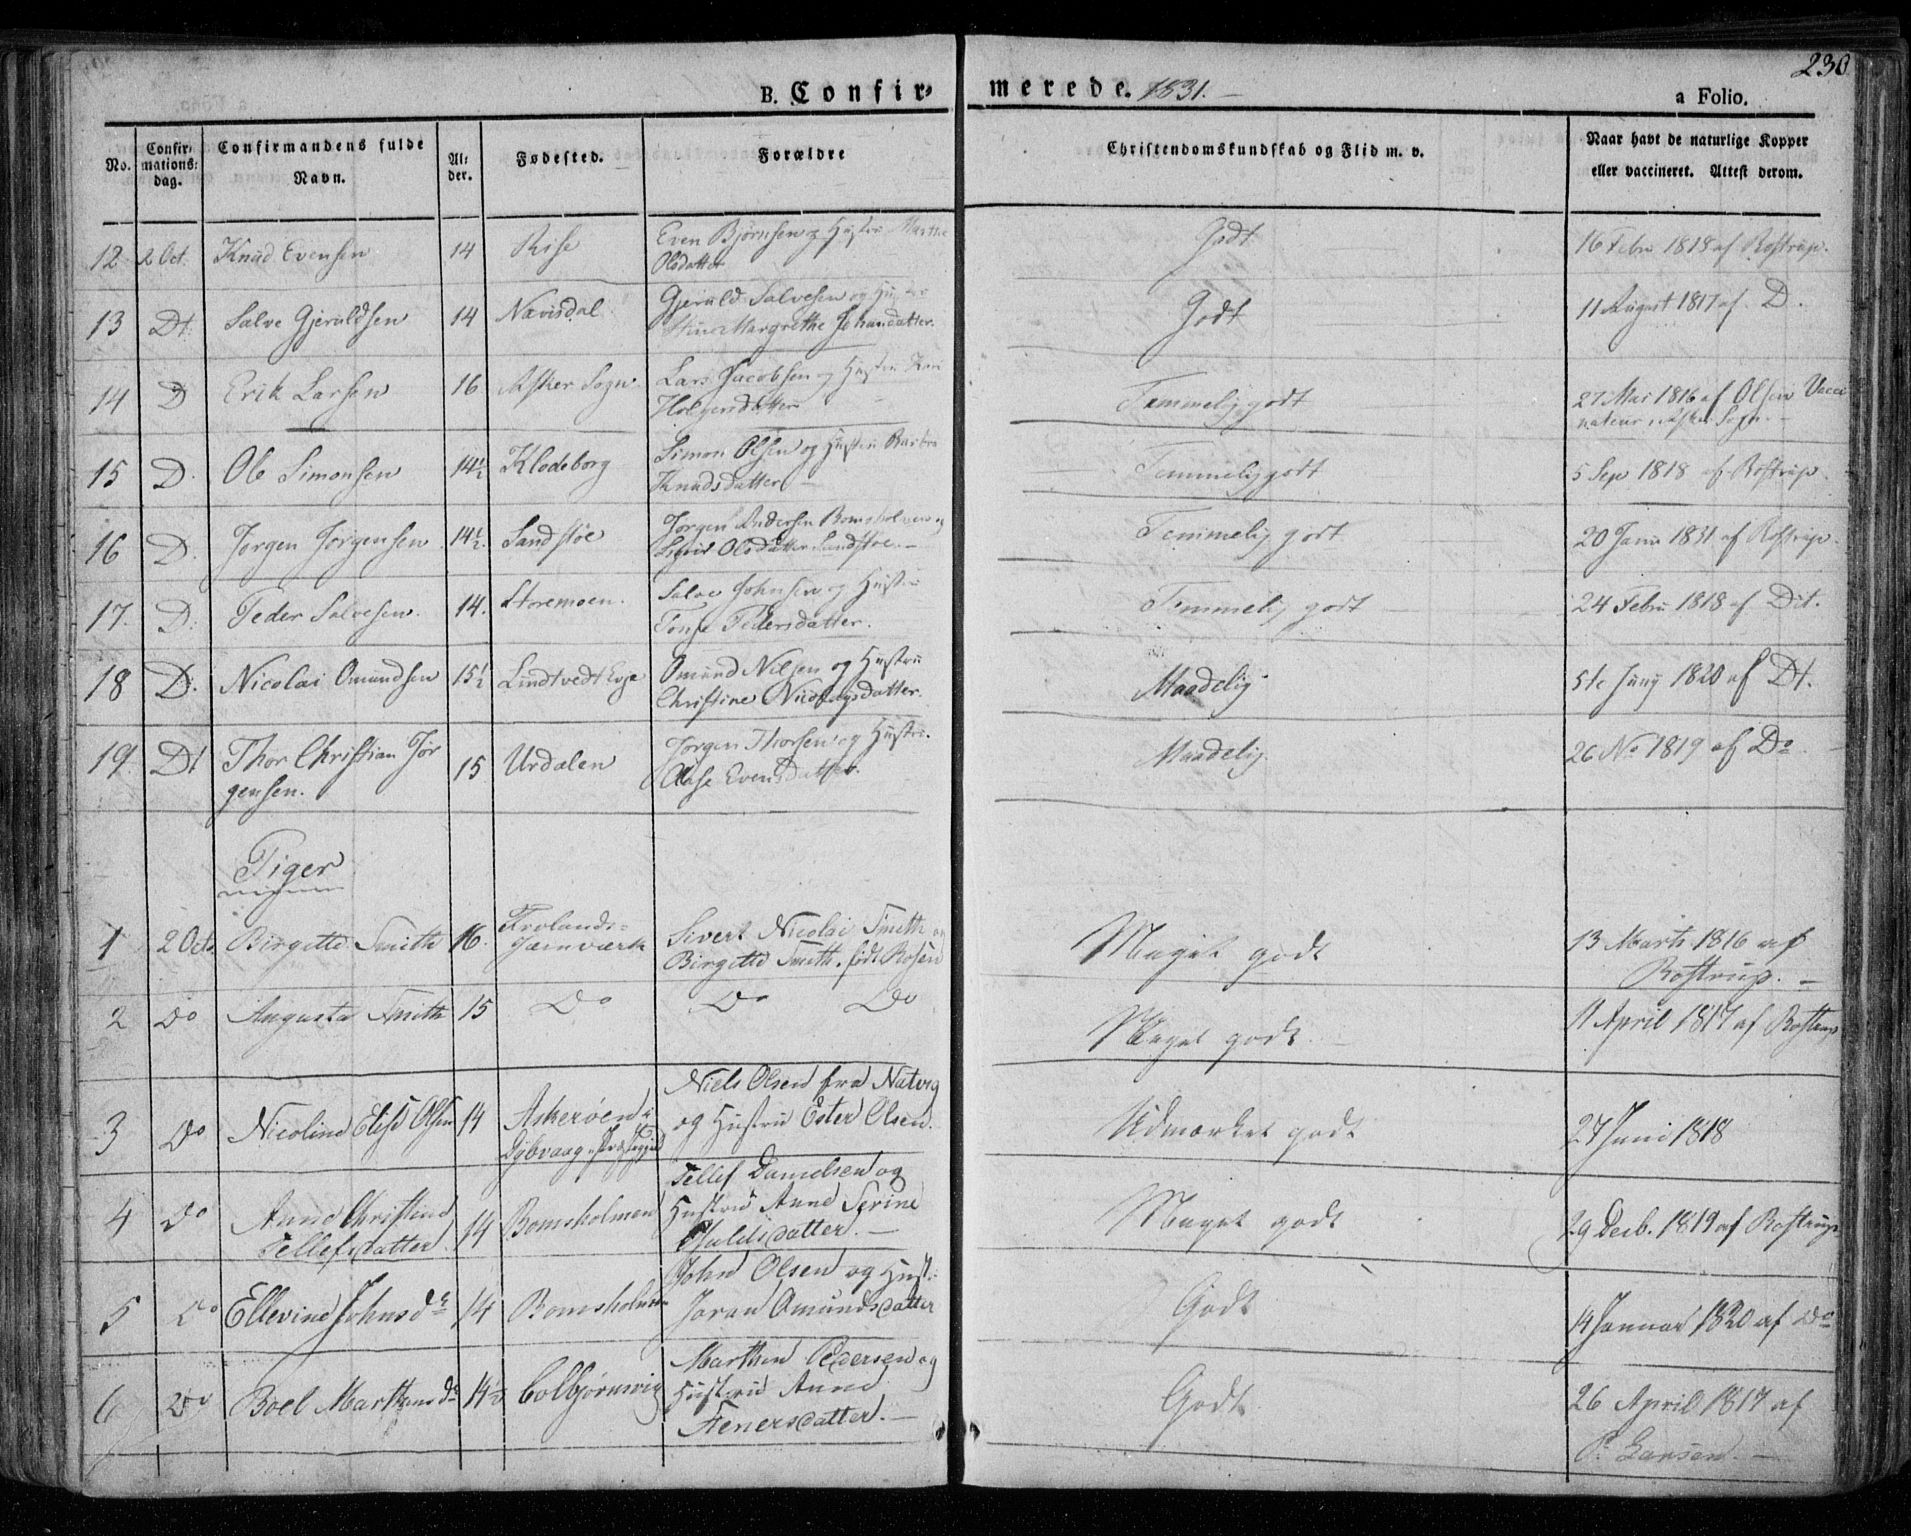 230
B. Confir- merede. 1831. a Folio.
No. Confirmations-dag. Confirmandens fulde Navn. Alder. Fødested. Forældre Christendomskundskab og Flid m. v. Naar havt de naturlige Kopper eller vaccineret. Attest derom.
12 2 Oct. Knud Evensen 14 Rise Even Bjørnsen og Hustru Marthe Olsdatter Godt 16 Febr 1818 af Rostrup.
13 Dt. Salve Gjeruldsen 14 Nævisdal Gjeruld Salvesen og Hustru Margrethe Johansdatter. Godt 11 August 1817 af D.
14 D Erik Larsen 16 Asker Sogn Lars Jacobsen og Hustru Kari Holgersdatter Temmelig godt 27 Mai 1816 af Olsen Vacci
nateur i Asker Sogn.
15 D. Ole Simonsen 14½ Klodeborg Simon Olsen og Hustru Barbra Knudsdatter Temmelig godt 5 Sep 1818 af Rostrup.
16 D. Jørgen Jørgensen 14½. Sandstøe Jørgen Andersen Bomsholmen og Sigrid Olsdatter Sandstøe. Temmelig godt 20 Janu 1831 af Rostrup.
17. D. Peder Salvesen. 14. Storemoen. Salve Johnsen og Hustru Tone Pedersdatter. Temmelig godt 24 Febru 1818 af Dit.
18 D. Nicolai Omundsen 15½ Lindtvedt Omund Nilsen og Hustru Christine Maadelig 5te Juny 1820 af Dt.
19. Dt Thor Christian Jør
gensen. 15 Urdalen Jørgen Thorsen og Hustru. Aase Evensdatter. Maadelig. 26 No 1819 af Do
Piger
1 2 Octo. Birgitte Smith 16. Frolands-
Jernværk Sivert Nicolai Smith og
Birgitte Smith. født Rosen Meget godt 13 Marts 1816 af
Rostrup.
2 Do Augusta Smith 15 Do Do Do Meget godt. 11 April 1817 af Rostrup
3 Do Nicoline Elise Olsen 14 Askerøen i
Dybvaag Niels Olsen fra Natvig
og Hustru Ester Olsen. Udmærket godt 27 Juni 1818
4 Do Anne Christine
Tellefsdatter 14 Bomsholmen Tellef Danielsen og
Hustru Anne Serine Meget godt 29 Decb. 1819 af Rostrup
5 Do Ellevine Johnsdr 14 Bomsholmen John Olsen og Hust.
Joran Omundsdatter Godt 14 Januar 1820 af Do
6 Do Boel Marthensdr 14½ Colbjørnsvig Marthen Pedersen og
Hustru Anne
Stenersdatter. Godt 26 April 1817 af
P. Larsen.